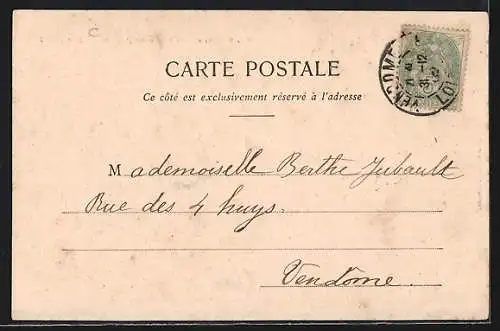 CARTE POSTALE
Ce côté est exclusivement réservé à l'adresse
Mademoiselle Berthe Jubault
Rue des 4 huys.
Vendôme.
VENDOME
31